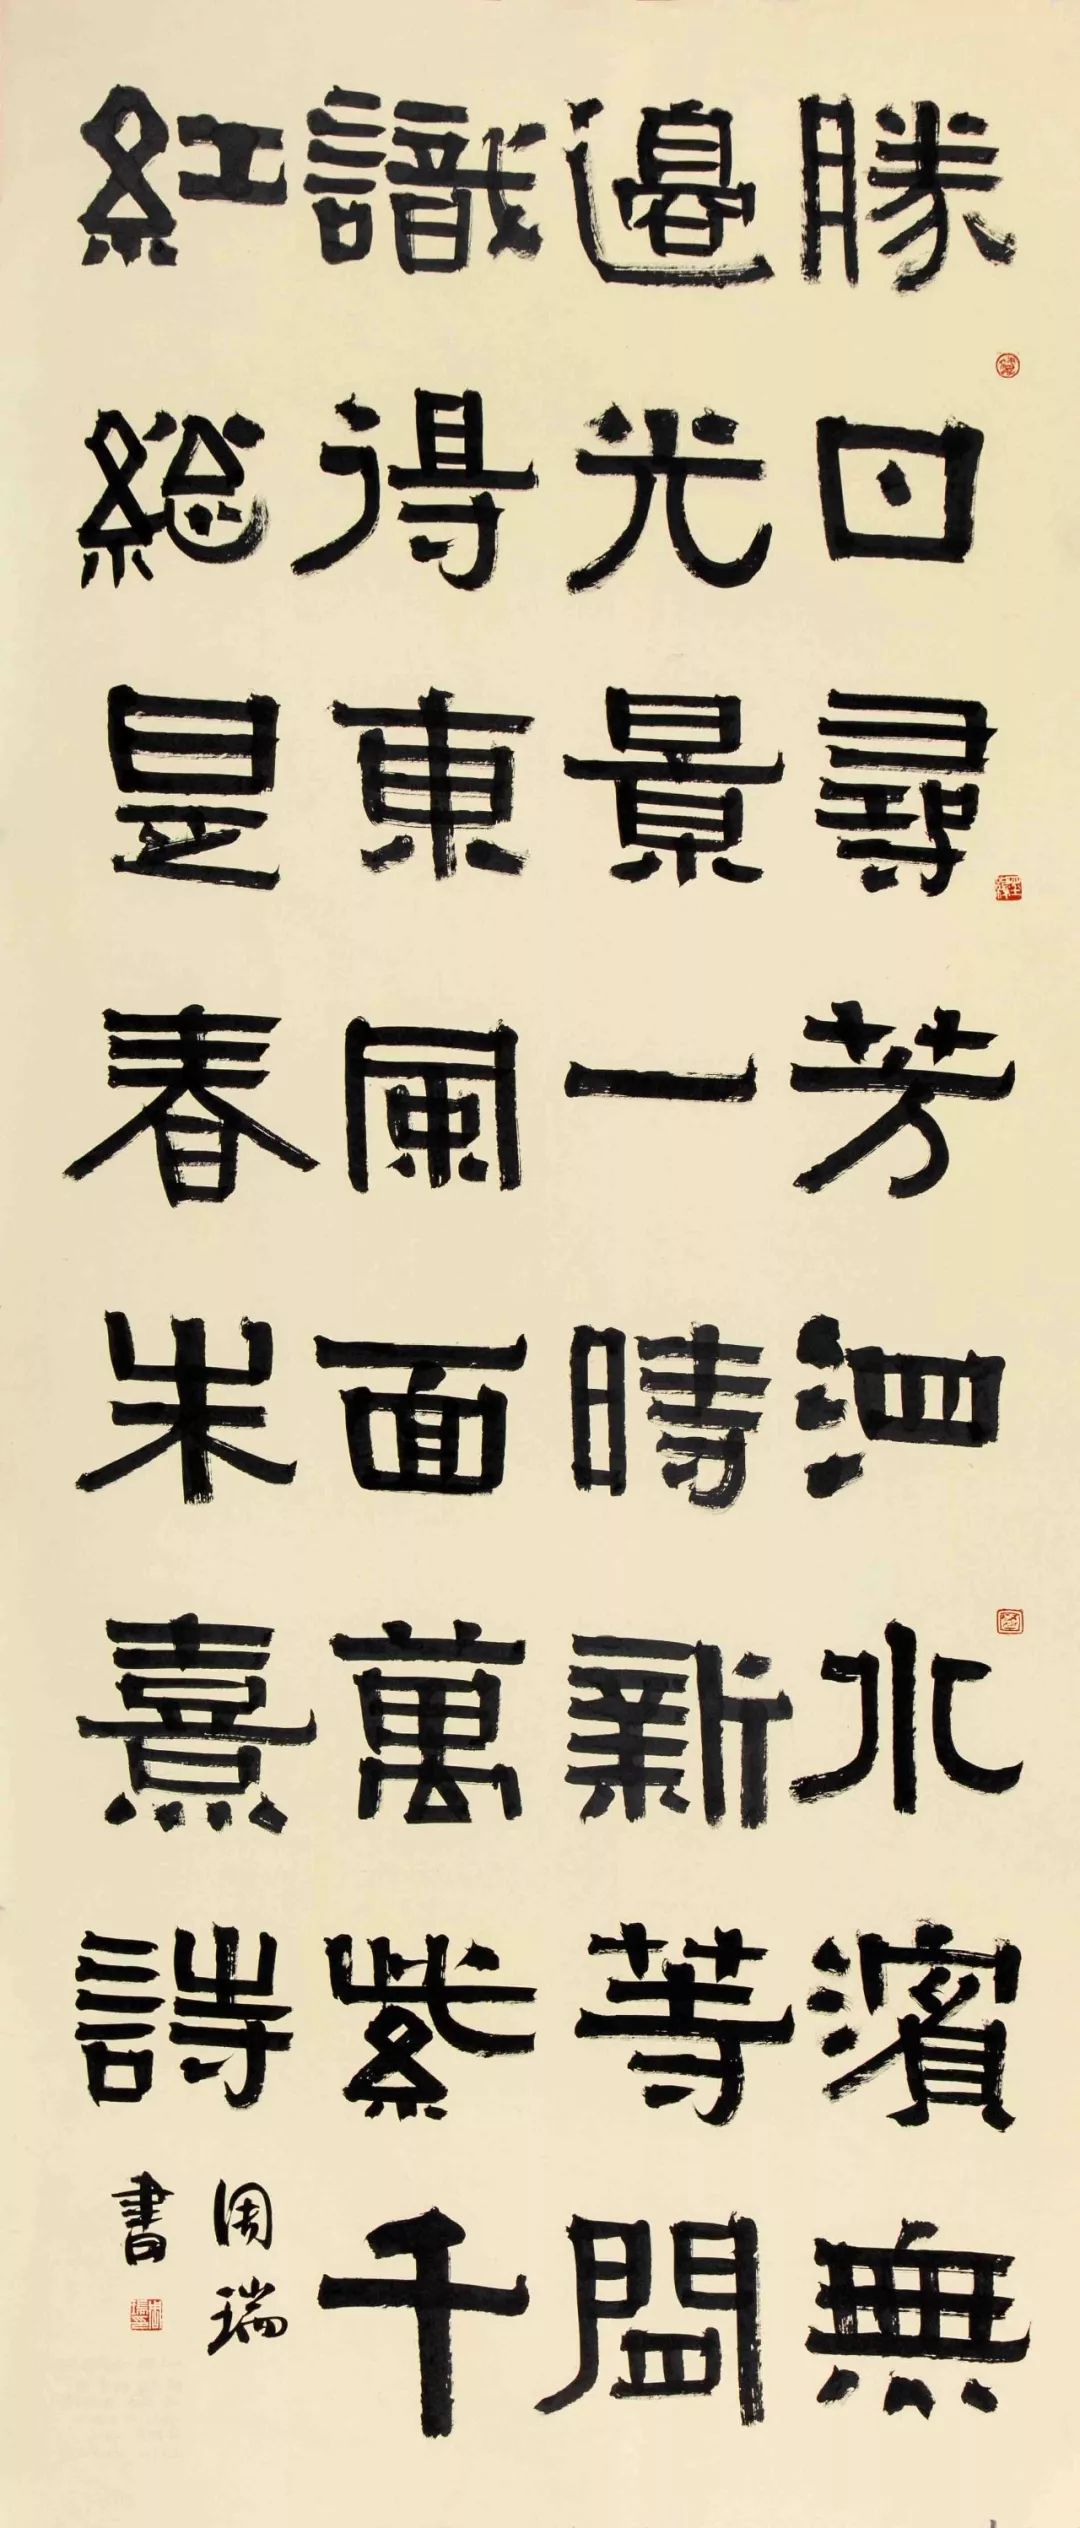 勝日尋芳泗水濱無
邊光景一時新等間
識得東風面萬紫千
紅総是春朱熹詩
周瑞
書